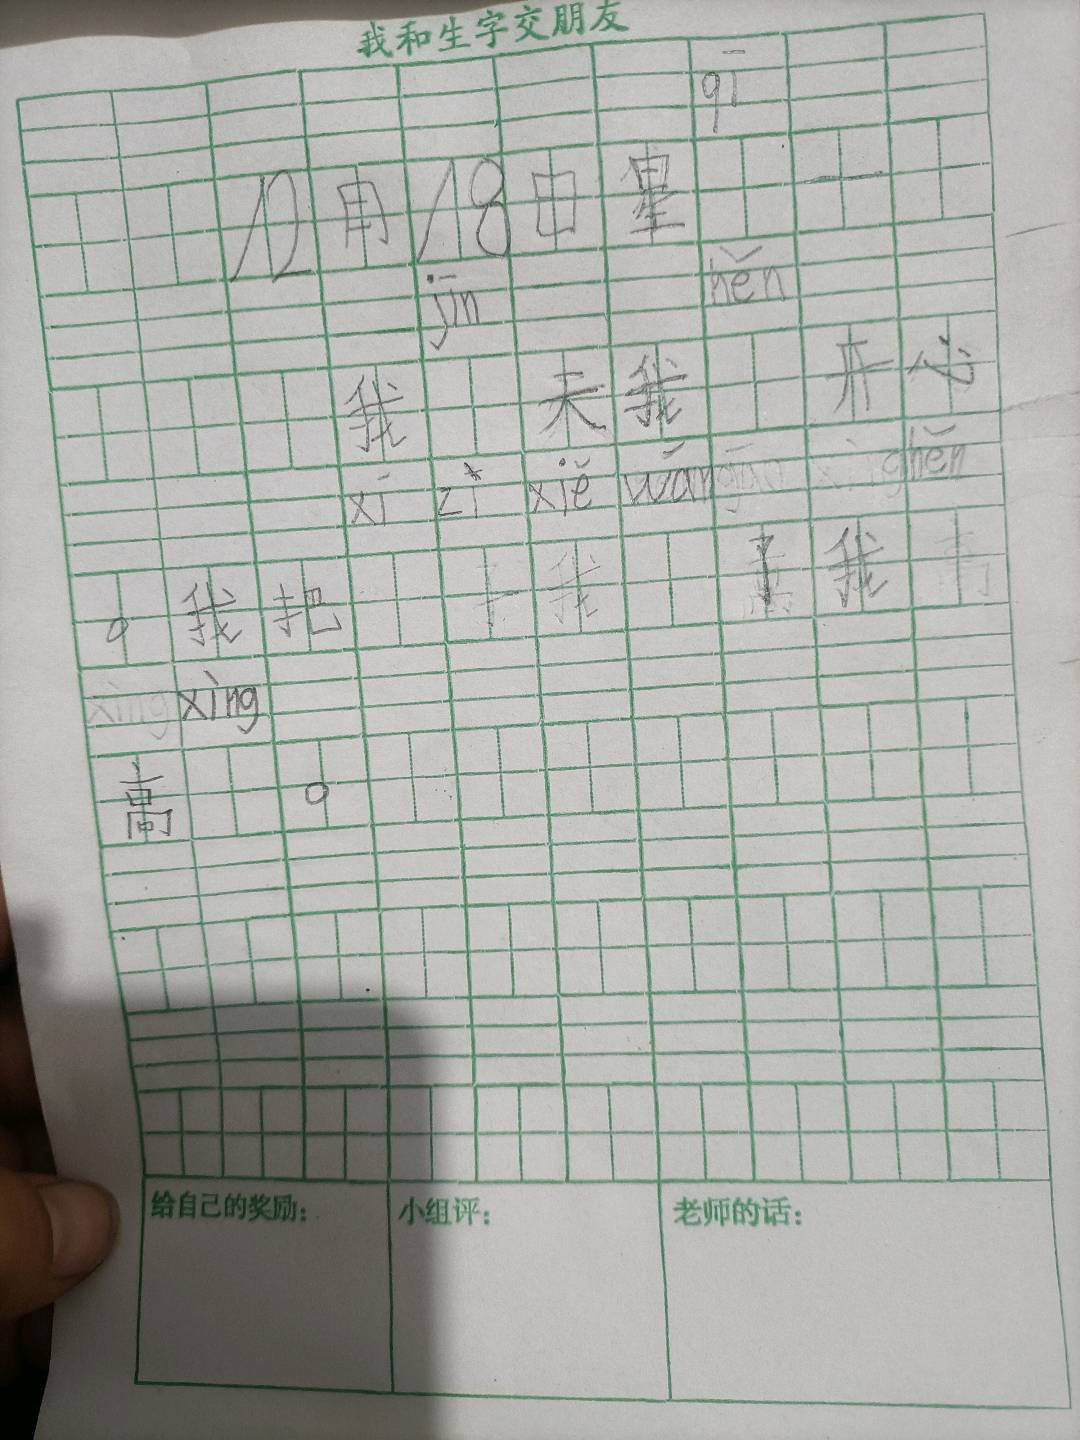 我和生字交朋友
qī
12月18日星 一
jīn hěn
我 天我 开心
xī zǐ xiě wán hěn
。我把 了我
xìng
高 。
给自己的奖励： 小组评： 老师的话：